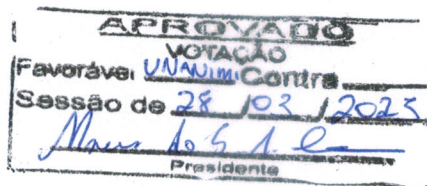 APROVADO
VOTAÇÃO
Favorável UNANIMI Contra
Sessão de 28 / 03 / 2023
Presidente